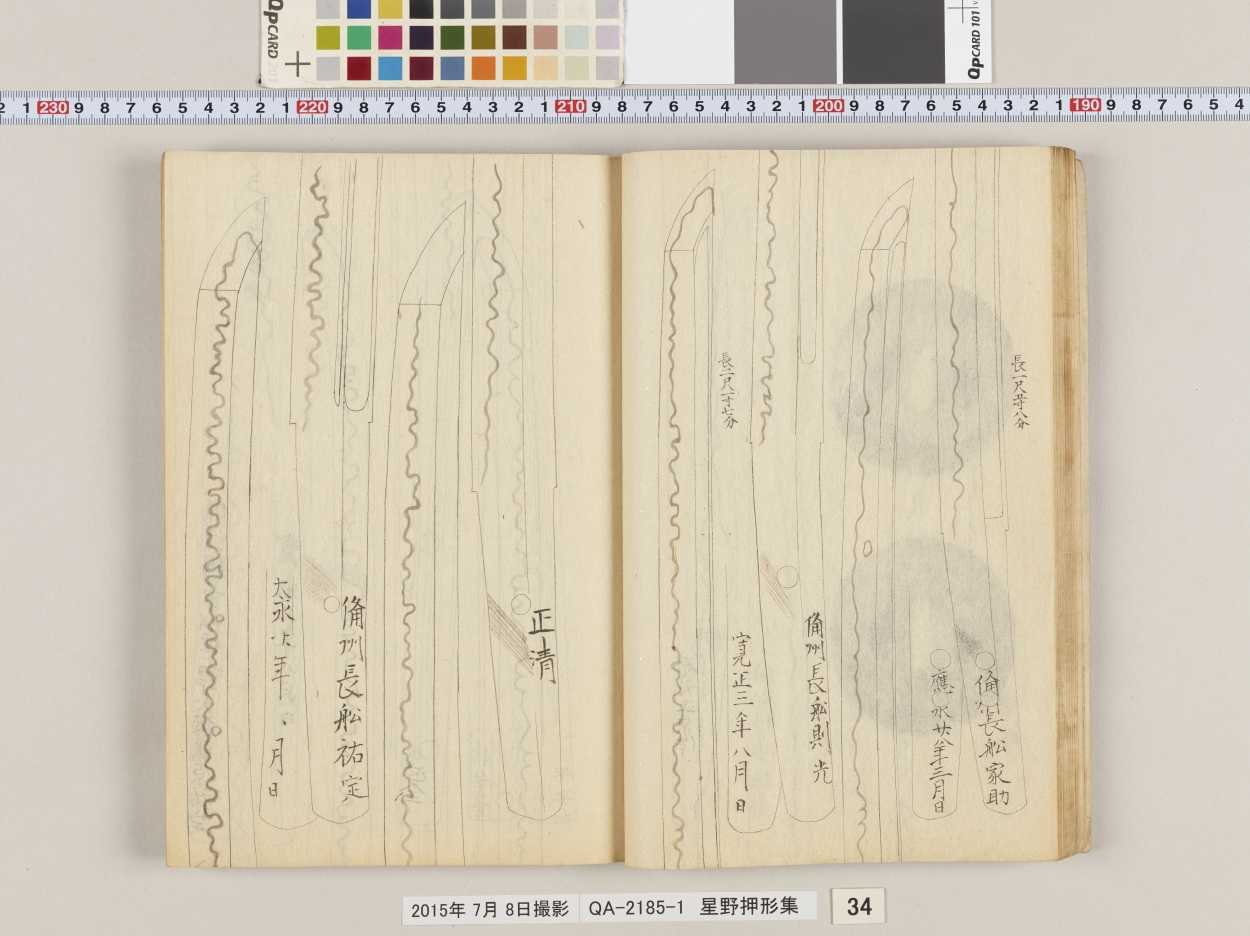 QpCARD 201
QpCARD 101
2 1 230 9 8 7 6 5 4 3 2 1 220 9 8 7 6 5 4 3 2 1 210 9 8 7 6 5 4 3 2 1 200 9 8 7 6 5 4 3 2 1 190 9 8 7 6 5 4
備州長船家助
應永廿八年三月日
備州長船則光
長二尺一寸七分
寛正三年八月日
正清
備州長船祐定
年
月
日
2015年 7月 8日撮影 QA-2185-1 星野押形集 34